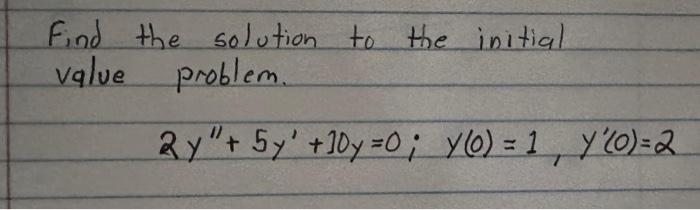 Find the solution to the initial
value problem.
2y" + 5y' + 10y = 0 ; y(0) = 1 , y'(0) = 2